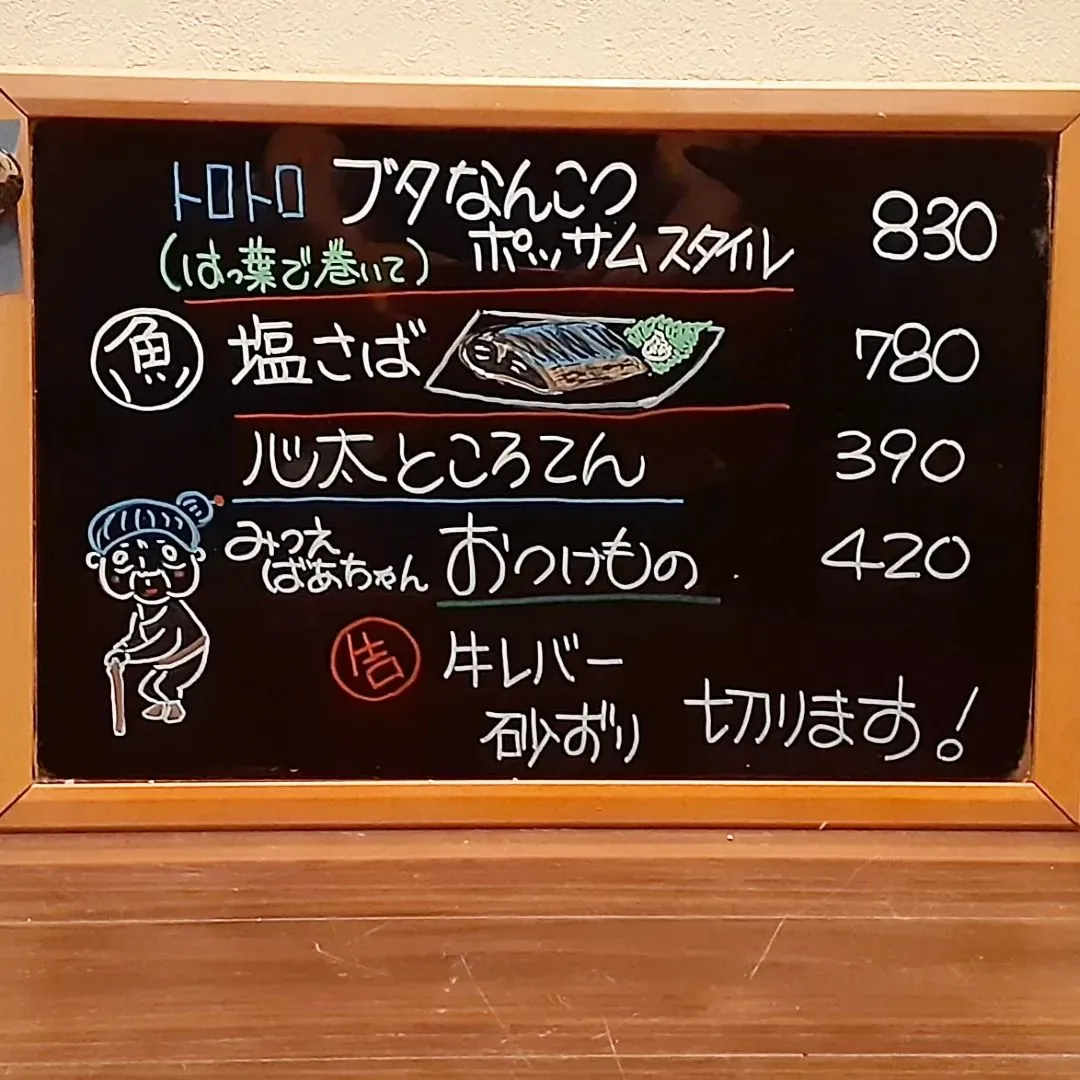 トロトロ ブタなんこつ 830
(はっ葉で巻いて) ポッサムスタイル
魚 塩さば 780
心太ところてん 390
みつえ
ばあちゃん おつけもの 420
告 牛レバー
砂ずり 切ります!